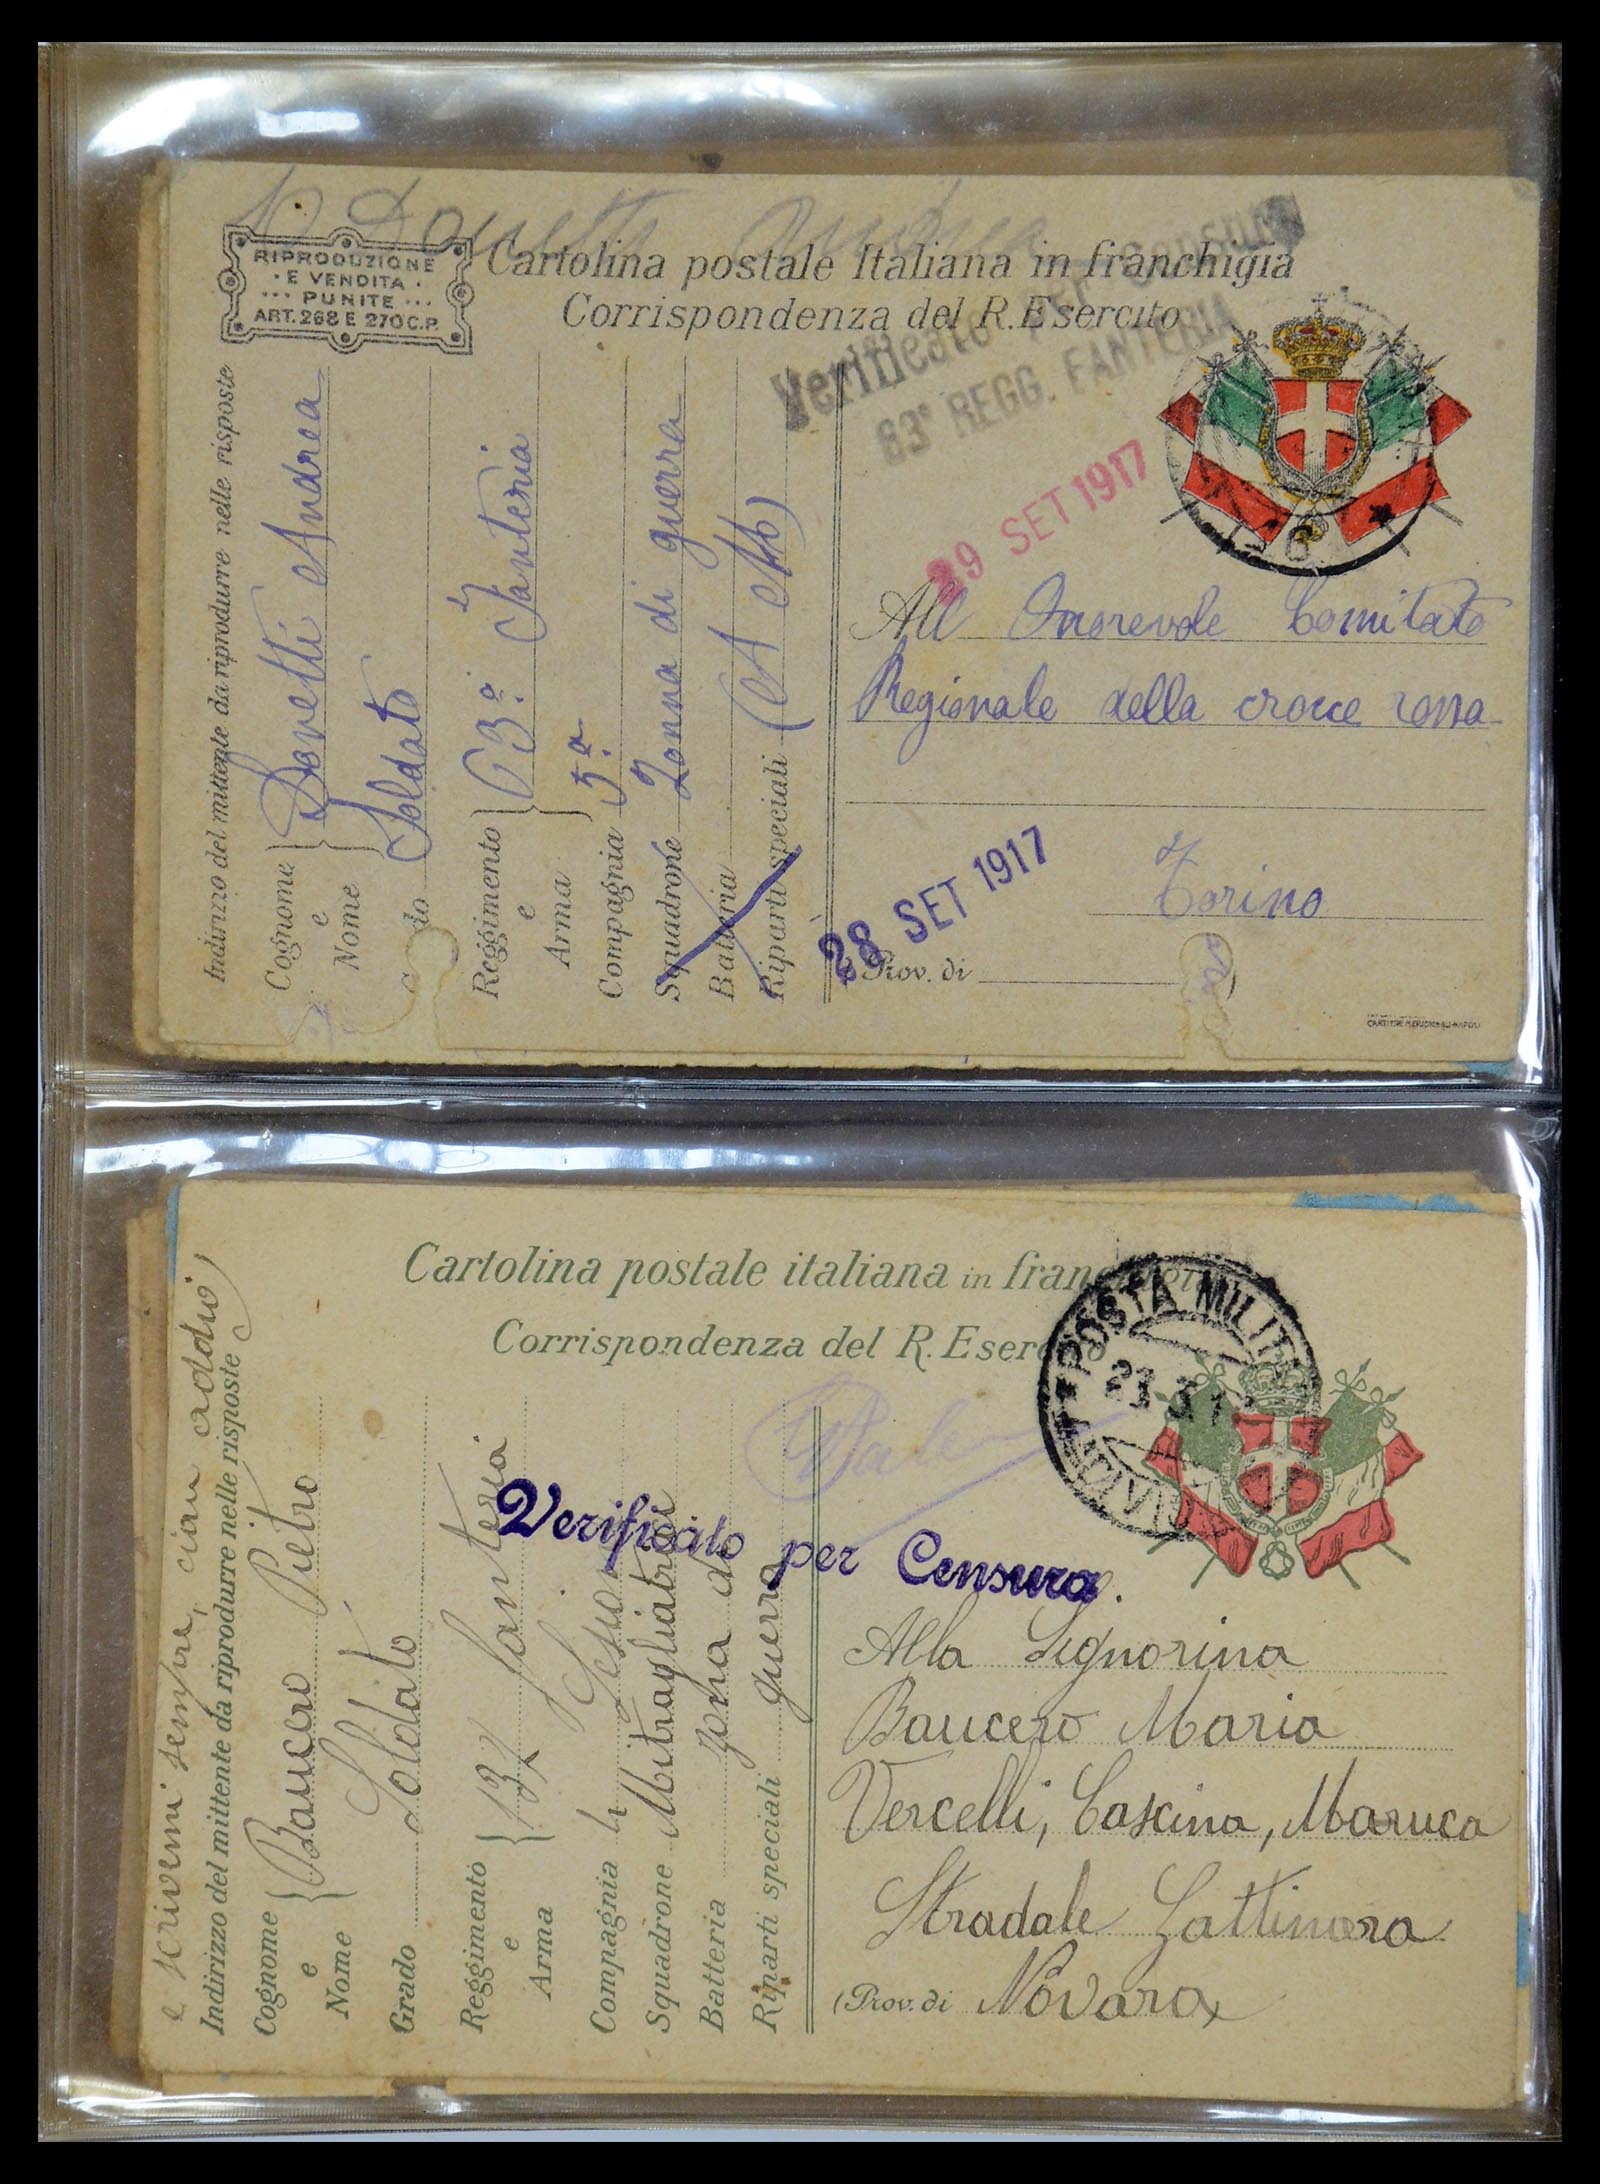 RIPRODUZIONE
E VENDITA
PUNITE
ART. 268 E 270 C.P.
Cartolina postale Italiana in franchigia
Corrispondenza del R. Esercito
Verificato per Censura
83° REGG. FANTERIA
29 SET 1917
Indirizzo del mittente da riprodurre nelle risposte
Cognome e Nome } Dovetti Andrea
Soldato
Reggimento e Arma } 63° Fanteria
Compagnia 5ª
Squadrone Zonna di guerra
Batteria
Riparti speciali
All Onorevole Comitato
Regionale della crocce rossa
Torino
28 SET 1917
(Prov. di )
CARTIERE MERIDIONALI-NAPOLI
Cartolina postale italiana in
Corrispondenza del R. Esercito
POSTA MILIT
e scrivemi sempre, ciau addio
Indirizzo del mittente da riprodurre nelle risposte
Cognome e Nome { Baucero Pietro
Grado Soldato
Reggimento e Arma { 132 fanteria
Compagnia
Squadrone Mitragliatrici
Batteria zona di
Riparti speciali guerra
Verificato per Censura.
Alla Signorina
Baucero Maria
Vercelli, Cascina, Maruca
Stradale Gattinara
(Prov. di Novara